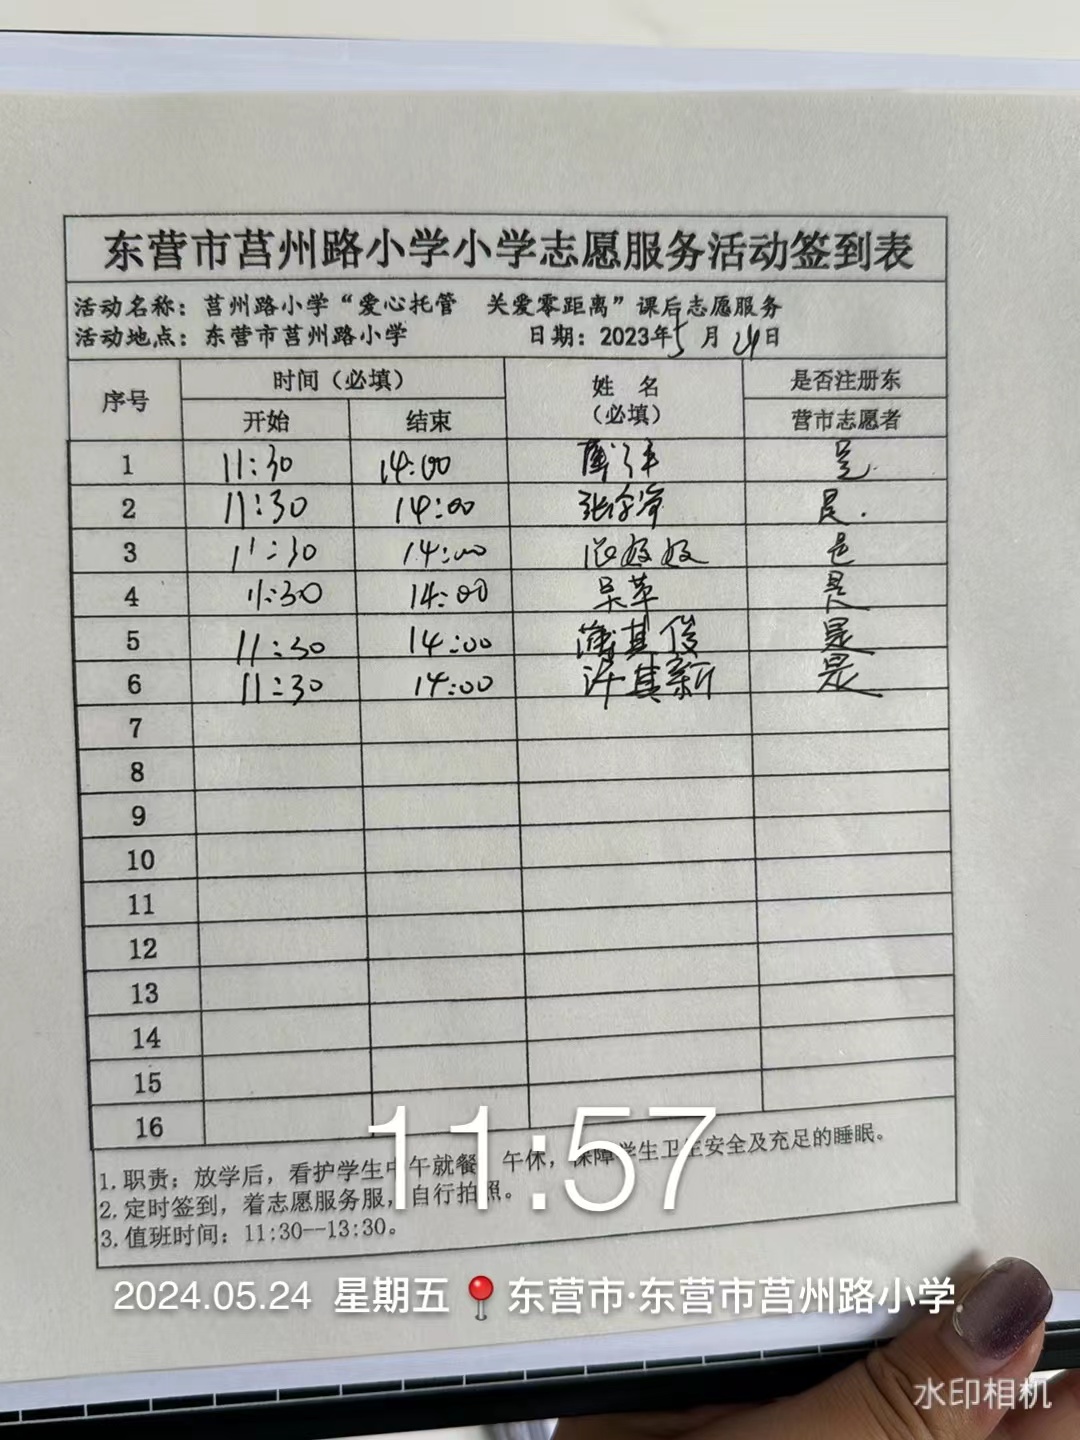 东营市莒州路小学小学志愿服务活动签到表
活动名称：莒州路小学“爱心托管 关爱零距离”课后志愿服务
活动地点：东营市莒州路小学 日期：2023年5月24日
序号 时间（必填） 姓 名（必填） 是否注册东营市志愿者
开始 结束
1 11:30 14:00 是
2 11:30 14:00 是.
3 11:30 14:00 是
4 11:30 14:00 吴苹 是
5 11:30 14:00 是
6 11:30 14:00 许其新 是
7
8
9
10
11
12
13
14
15
16
1.职责：放学后，看护学生中午就餐、午休，保障学生卫生安全及充足的睡眠。
2.定时签到，着志愿服务服，自行拍照。
3.值班时间：11:30--13:30。
11:57
2024.05.24 星期五 东营市·东营市莒州路小学
水印相机